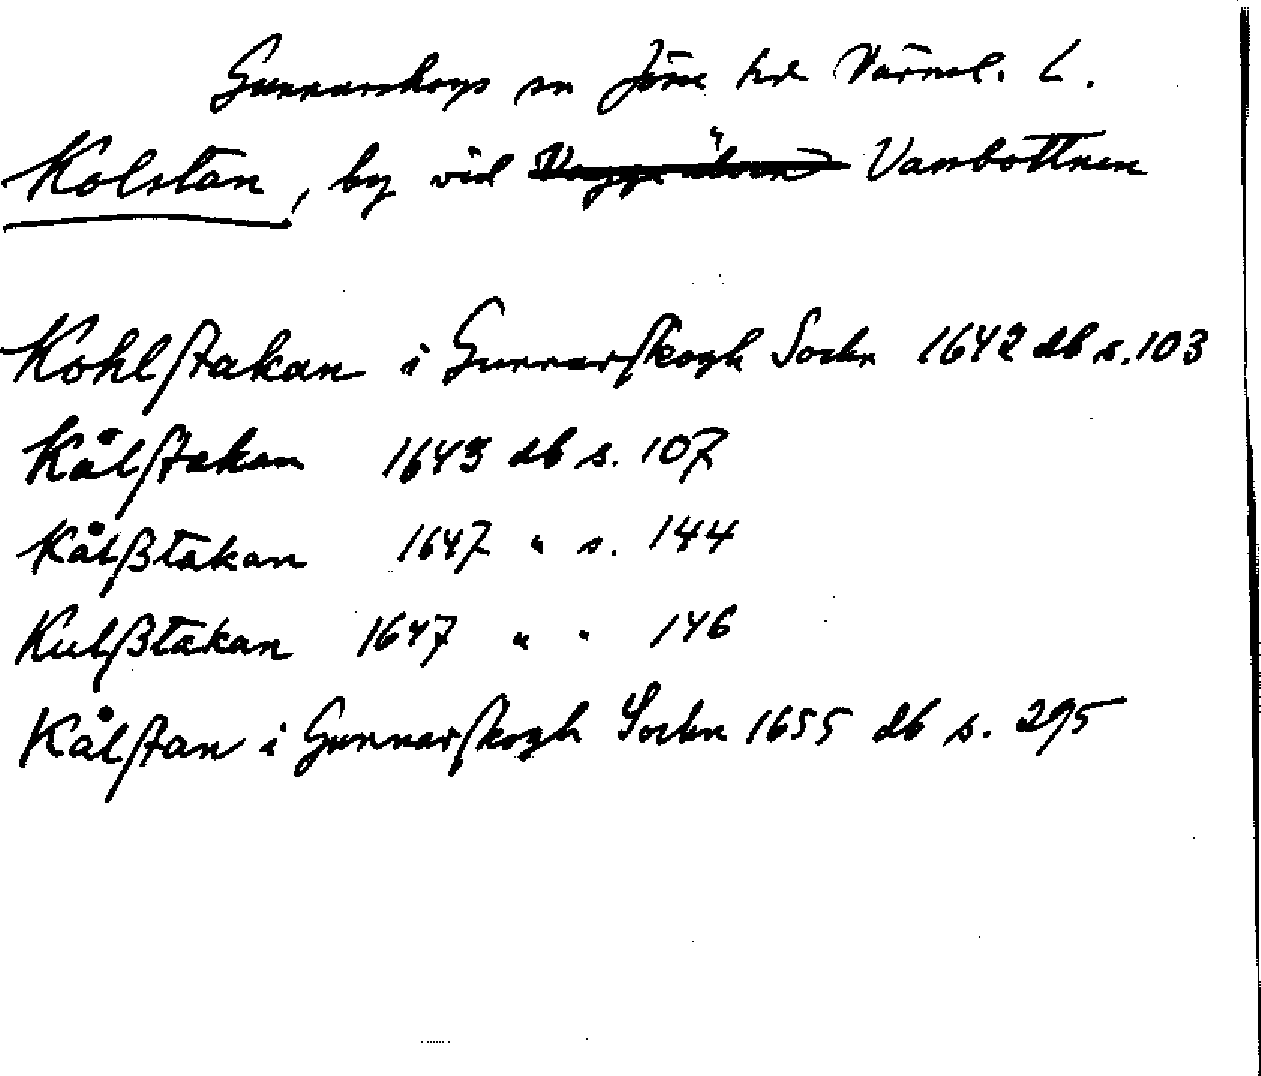 Gunnarskogs sn Jösse hd Värml. L.
Kolstan, by vid Vansbottnen
Kohlstakan i Gunnarskogh Sockn 1642 db s. 103
Kålstakan 1643 db s. 107
Kålßtakan 1647 " s. 144
Kulßtakan 1647 " " 146
Kålstan i Gunnarskogh Sockn 1655 db s. 295